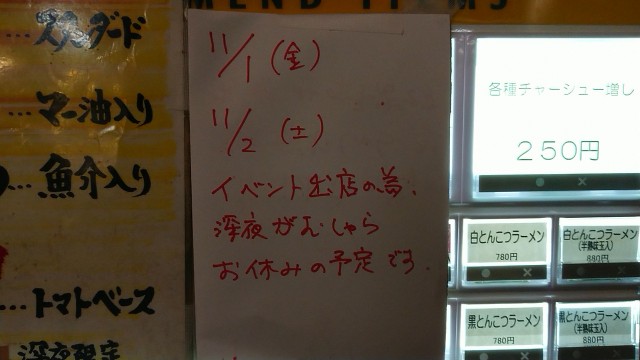 MENU ITEMS
スタンダード
…マー油入り
…魚介入り
…トマトベース
深夜限定
11/1(金)
11/2(土)
イベント出店の為、
深夜がむしゃら
お休みの予定です.
各種チャーシュー増し
250円
白とんこつラーメン
780円
白とんこつラーメン
(半熟味玉入)
880円
黒とんこつラーメン
780円
黒とんこつラーメン
(半熟味玉入)
880円